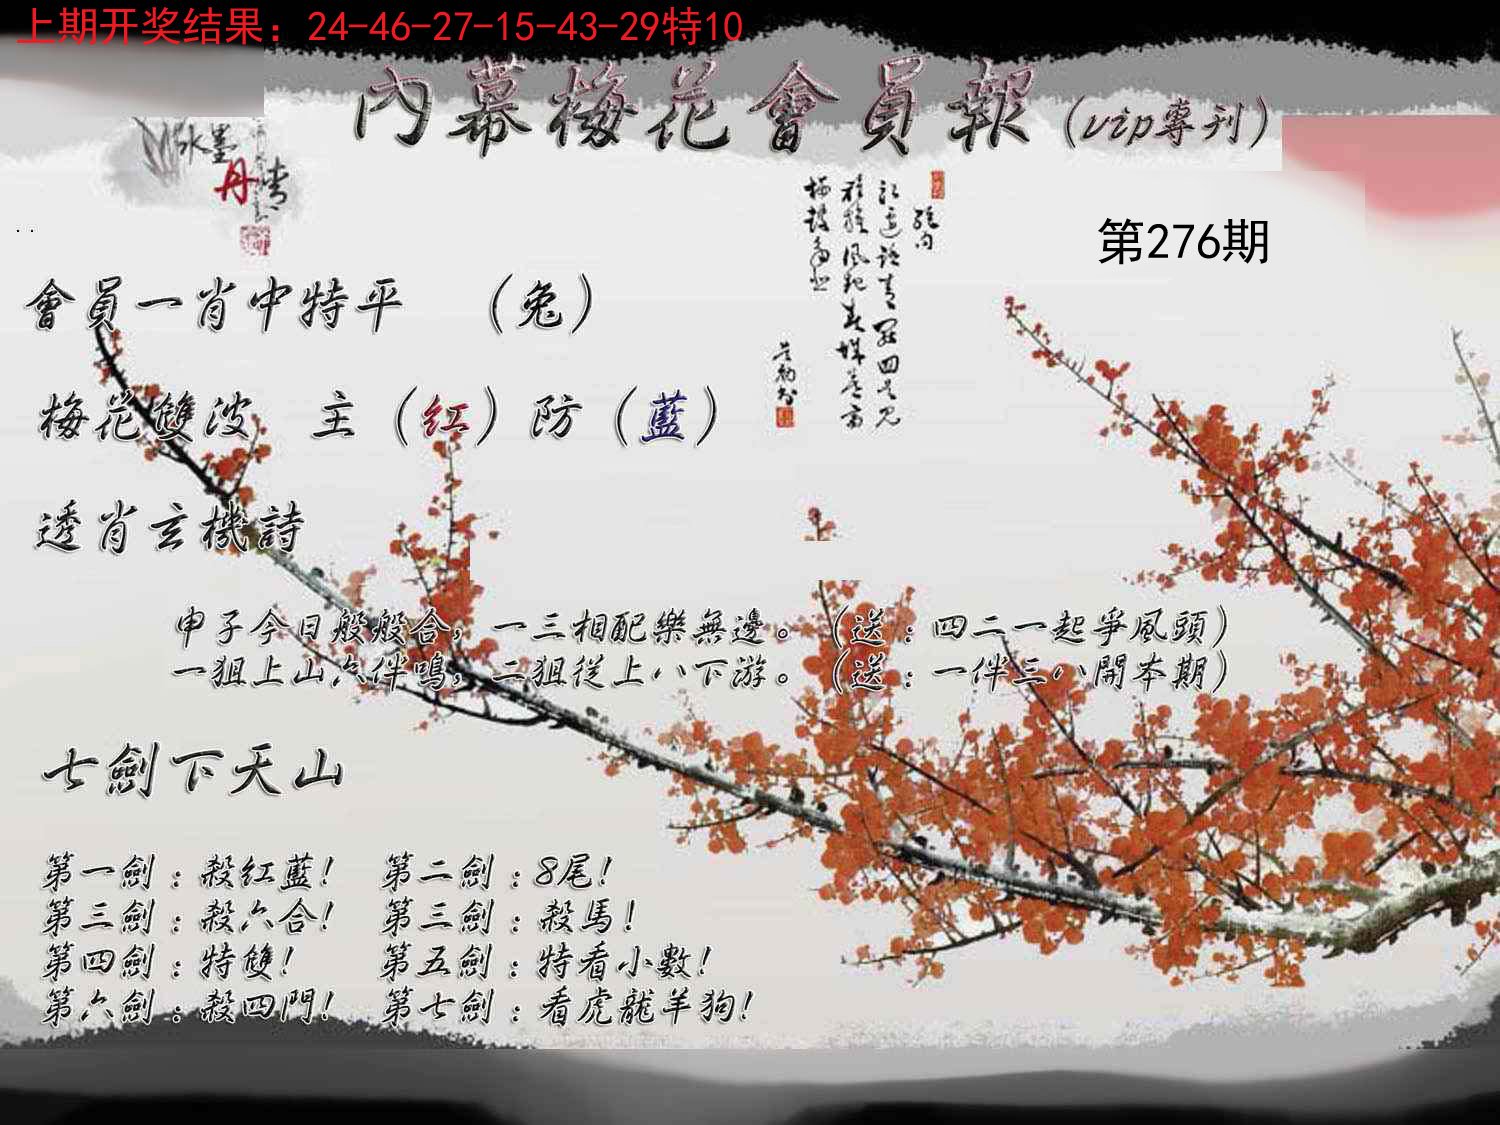 上期开奖结果：24-46-27-15-43-29特10
內幕梅花會員報(vip專刊)
水墨
丹情
绝句
第276期
會員一肖中特平 （兔）
梅花雙波 主（红）防（藍）
透肖玄機詩
申子今日般般合，一三相配樂無邊。（送：四二一起爭風頭）
一狙上山六伴鳴，二狙從上八下游。（送：一伴三八開本期）
七劍下天山
第一劍：殺红藍！ 第二劍：8尾！
第三劍：殺六合！ 第三劍：殺馬！
第四劍：特雙！ 第五劍：特看小數！
第六劍：殺四門！ 第七劍：看虎龍羊狗！